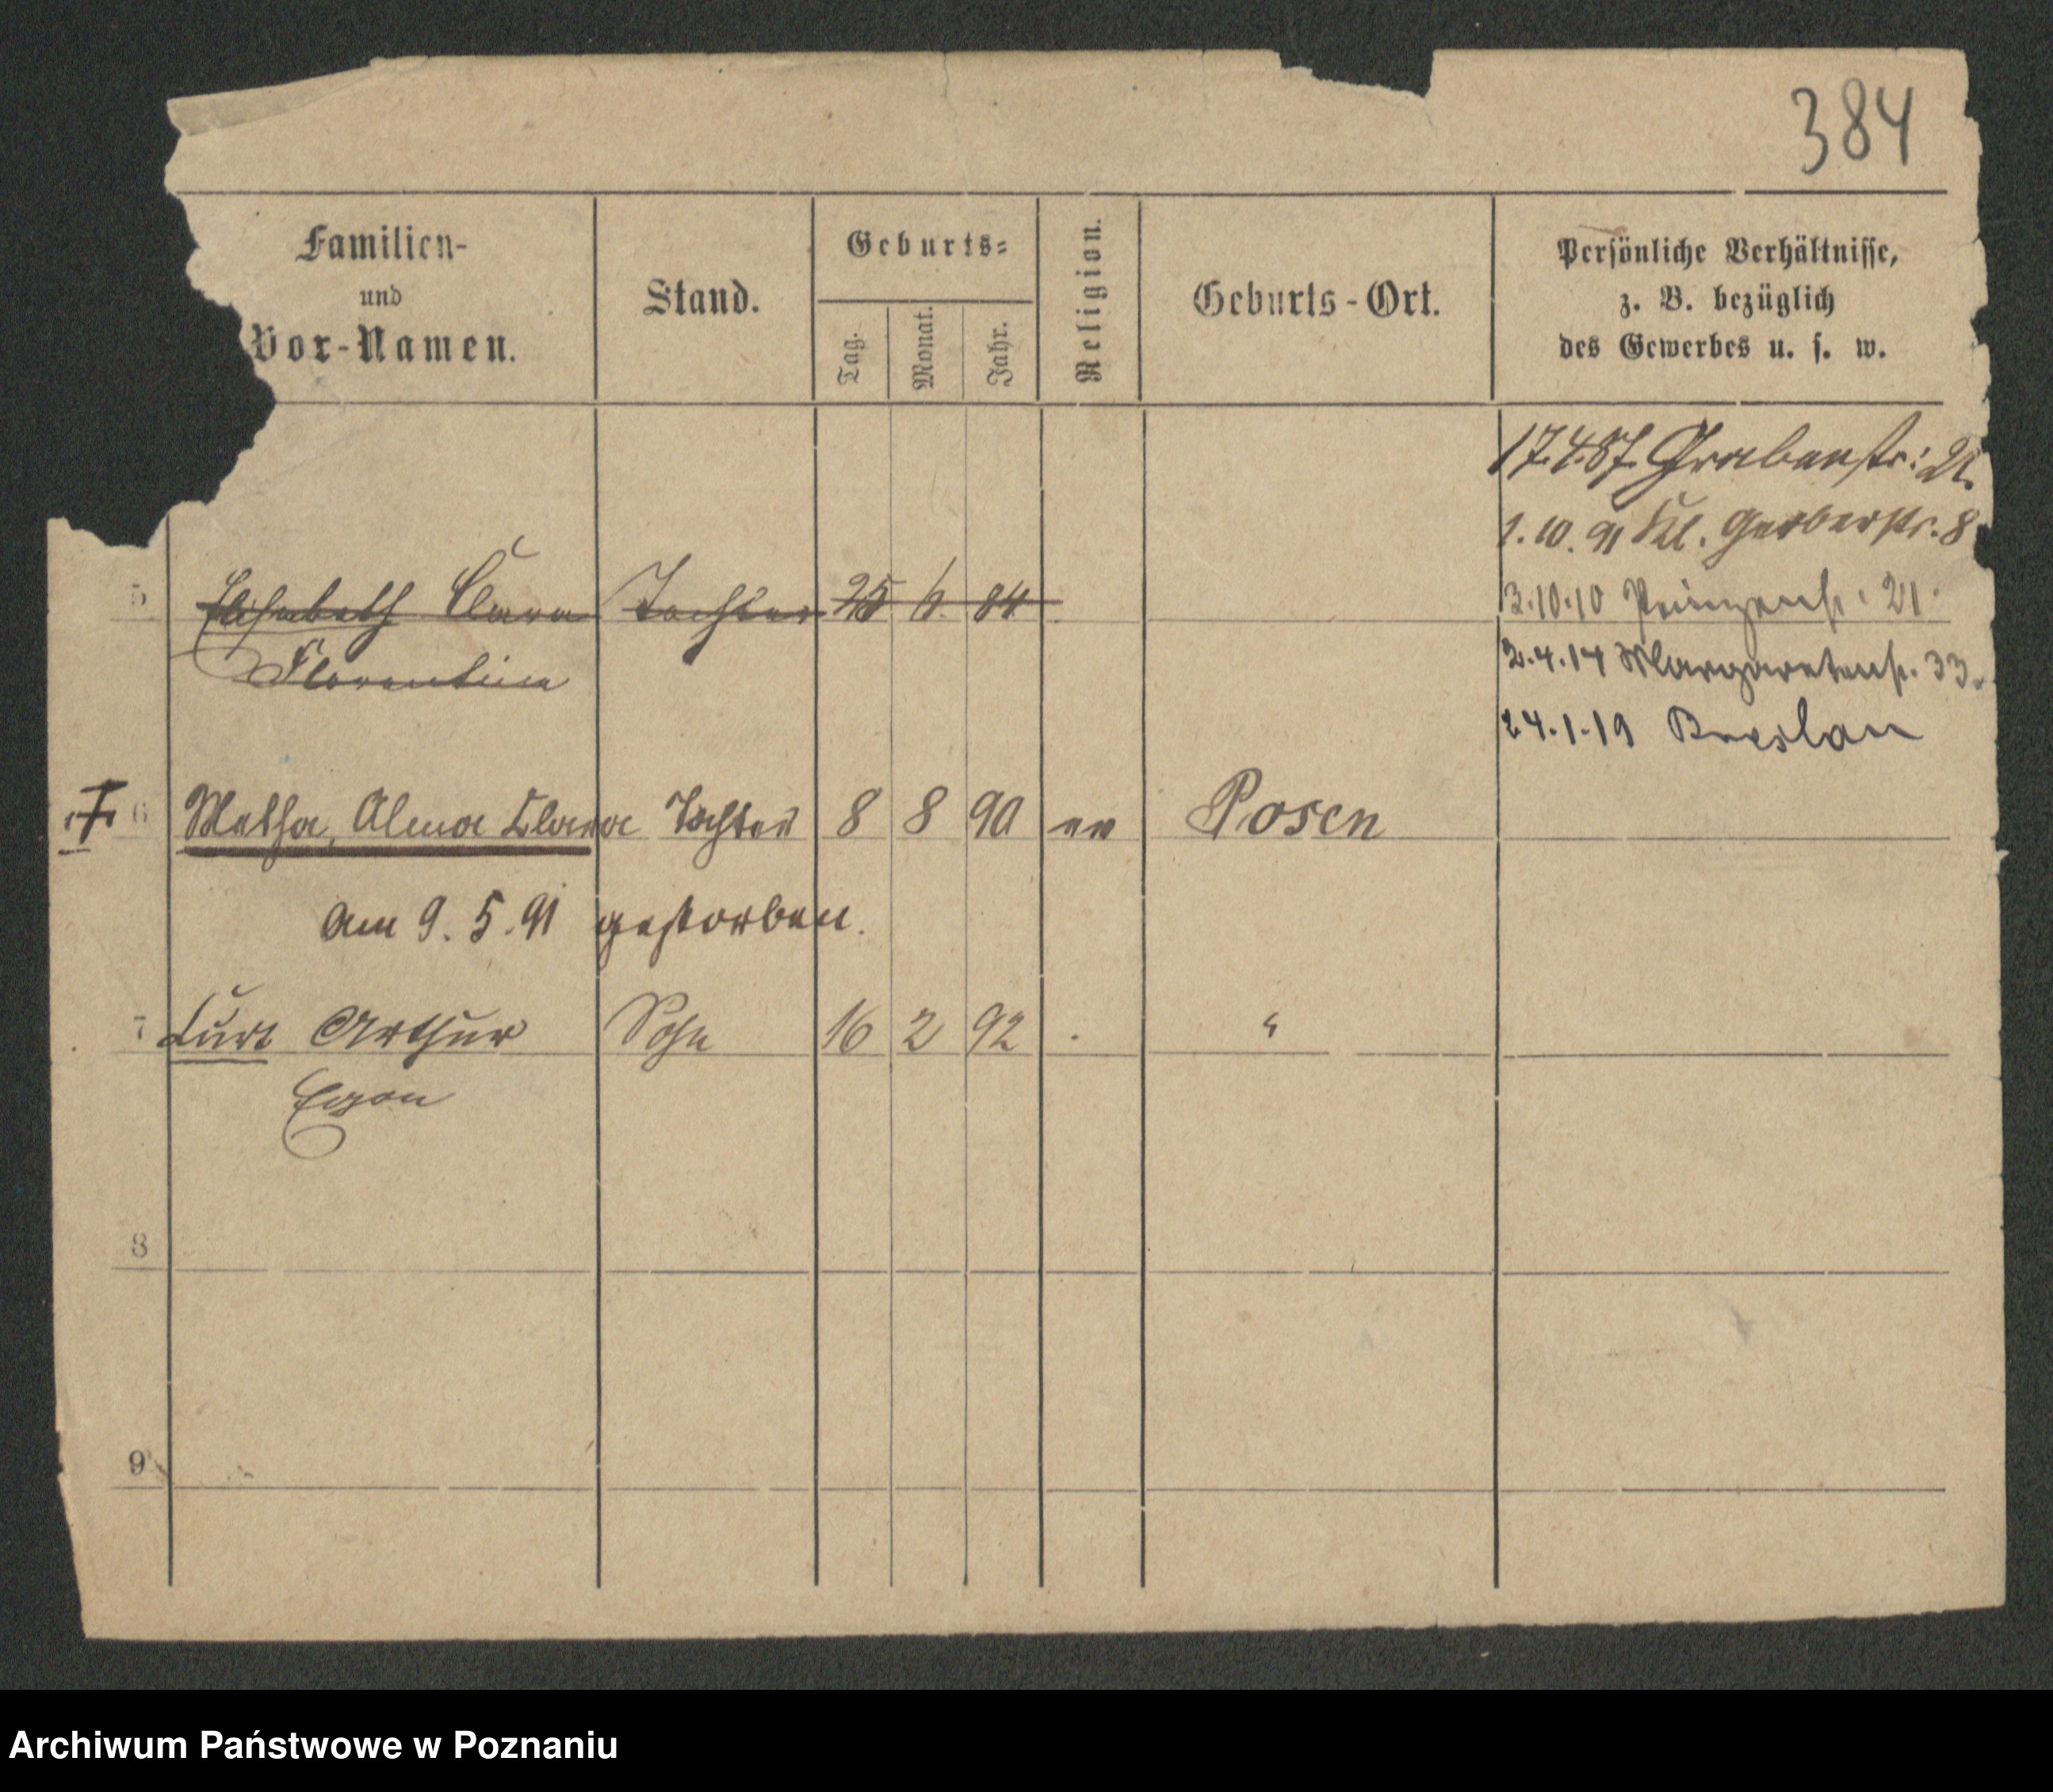 384
Familien-
und
Vor-Namen.
Stand.
Geburts-
Tag.
Monat.
Jahr.
Religion.
Geburts-Ort.
Persönliche Verhältnisse,
z. B. bezüglich
des Gewerbes u. s. w.
17.4.87. Grabenstr: 21.
1.10.91 Kl. Gerberstr. 8
5 Elisabeth Clara Tochter 25 6 84
3.10.10 Prinzenstr. 21.
Florentine
2.4.14 Margaretenstr. 33.
24.1.19 Breslau
6 Alma Clara Tochter 8 8 90 ev Posen
am 9.5.91 gestorben.
7 Curt Arthur Sohn 16 2 92 . "
Egon
8
9
Archiwum Państwowe w Poznaniu